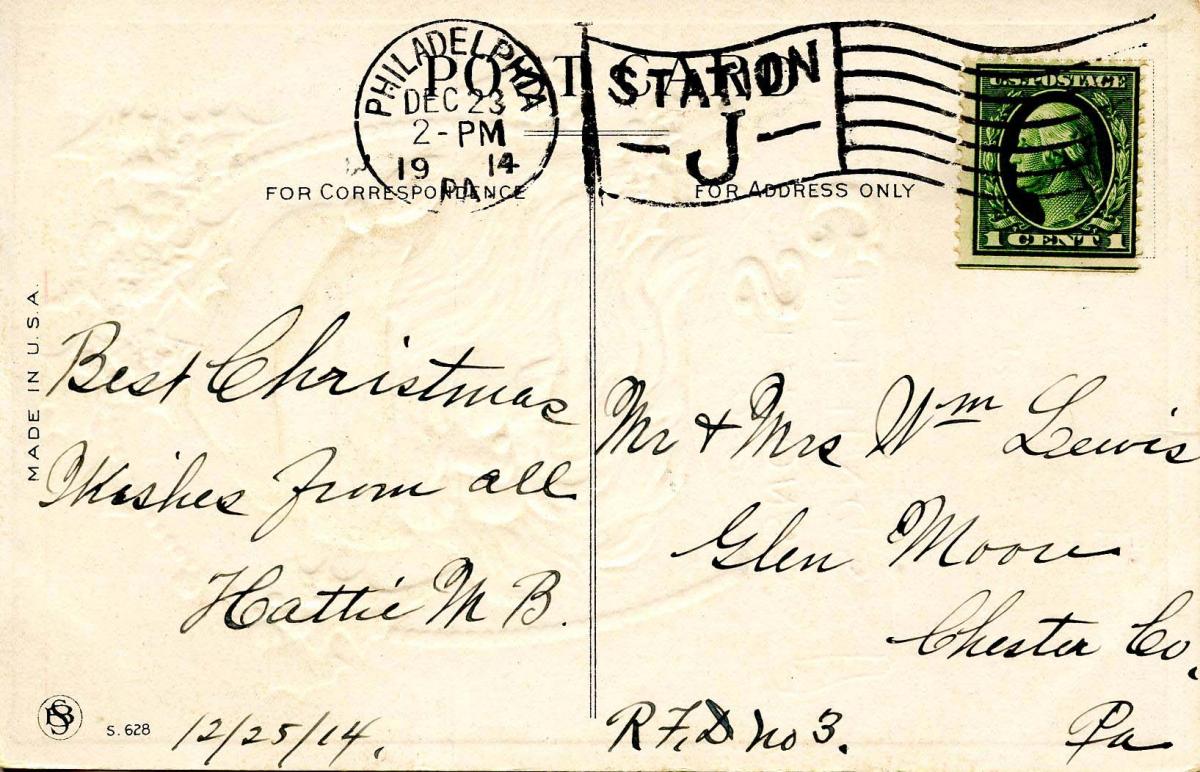 PHILADELPHIA
DEC 23
2-PM
19 14
PA.
POST CARD
STATION
-J-
U.S. POSTAGE
1 CENT 1
FOR CORRESPONDENCE
FOR ADDRESS ONLY
MADE IN U.S.A.
Best Christmas
Wishes from all
Hattie M B.
12/25/14.
S. 628
Mr & Mrs Wm Lewis
Glen Moore
Chester Co.
R F. D no 3.
Pa